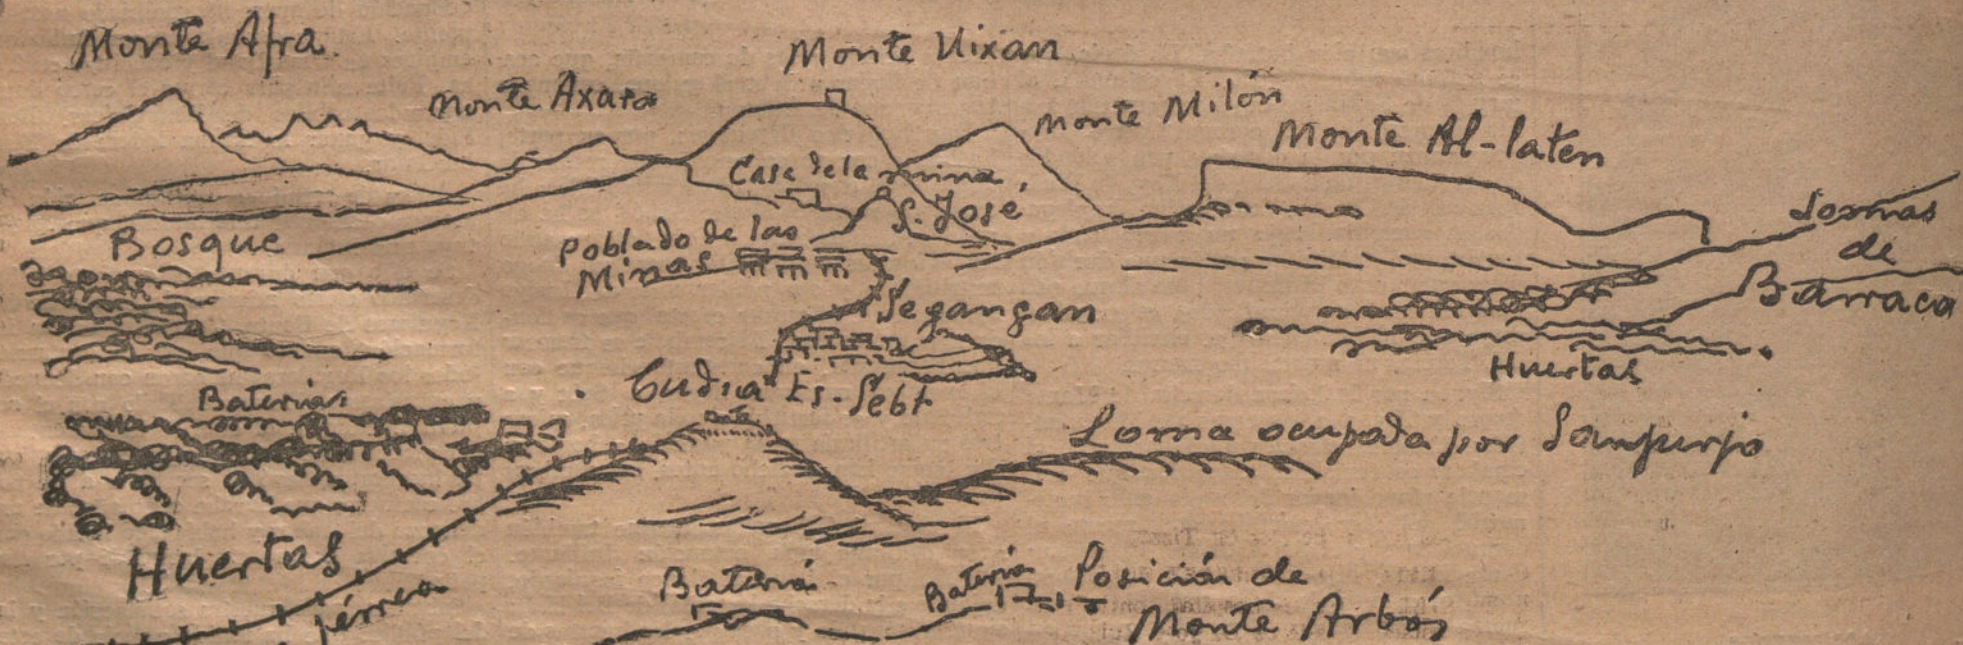 Monte Afra.
Monte Uixan
Monte Axara
Monte Milón
Monte Al-laten
Casa de la mina
S. José
Bosque
Poblado de las
Minas
Lomas
de
Barraca
Segangan
Huertas
Baterias
Cudia Es-Sebt
Loma ocupada por Sanjurjo
Huertas
férrea
Bateria
Bateria
Posición de
Monte Arbós